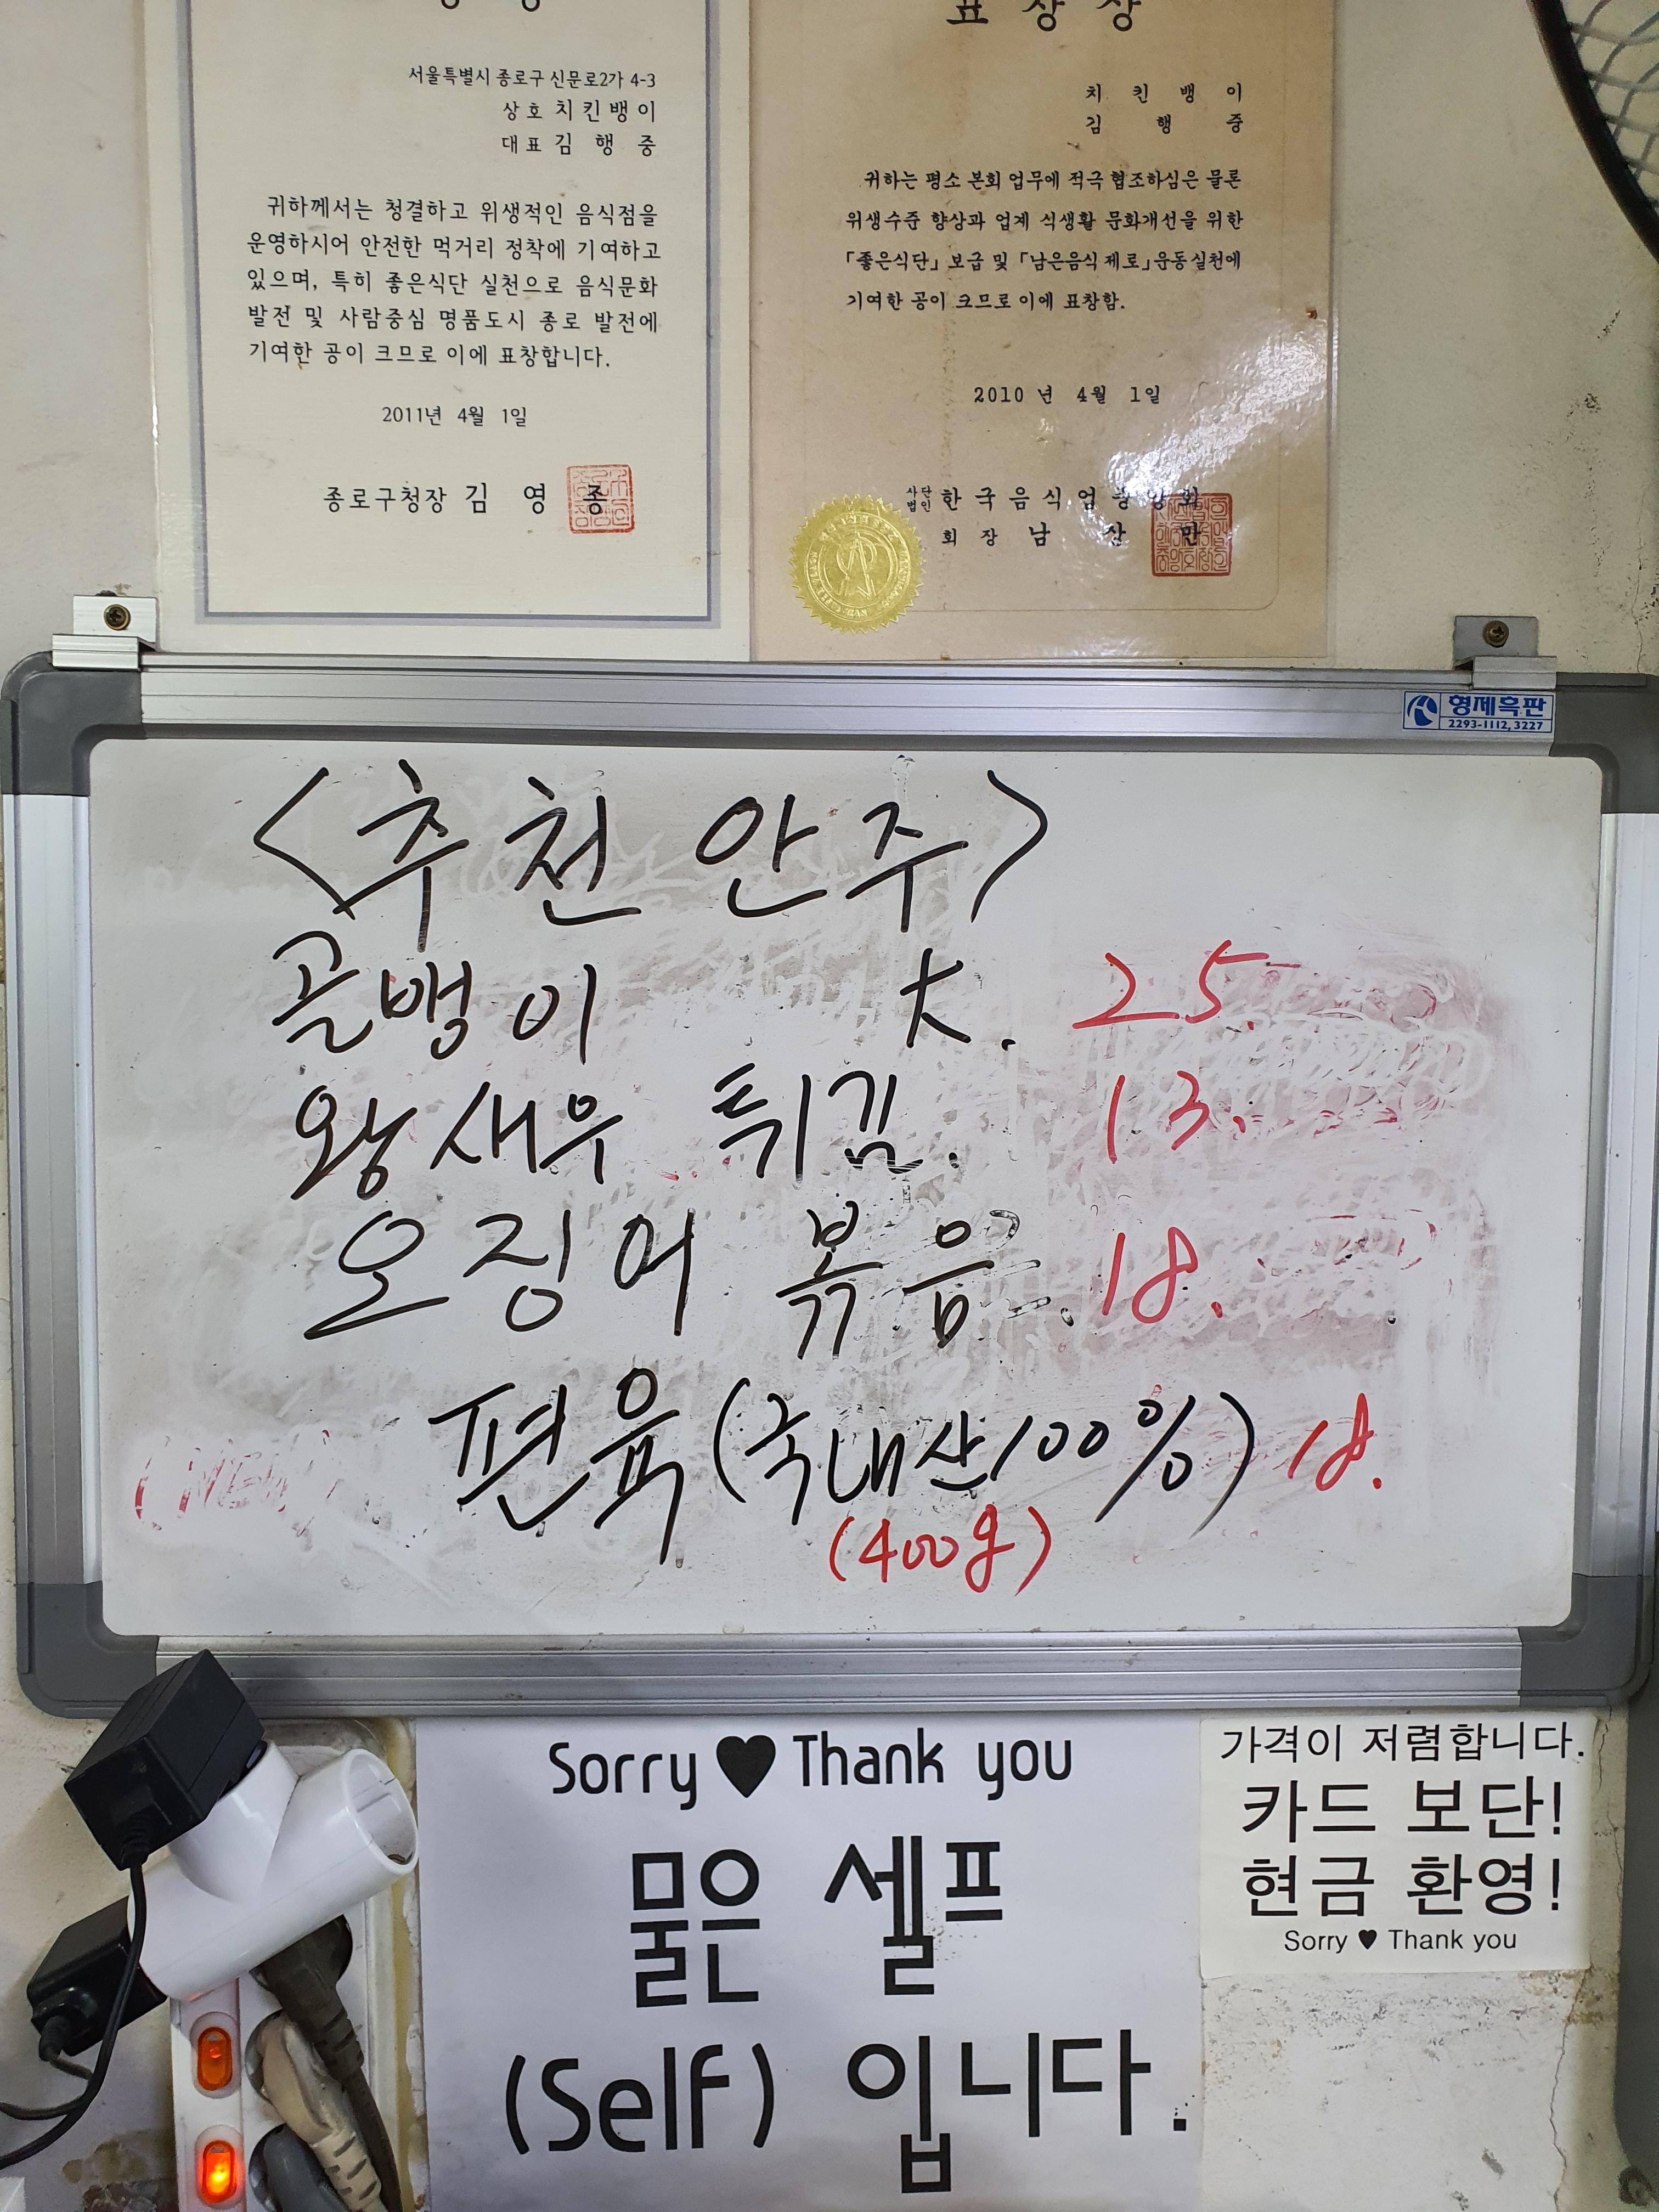 표 창 장
서울특별시 종로구 신문로2가 4-3
상호 치킨뱅이
대표 김 행 중
귀하께서는 청결하고 위생적인 음식점을
운영하시어 안전한 먹거리 정착에 기여하고
있으며, 특히 좋은식단 실천으로 음식문화
발전 및 사람중심 명품도시 종로 발전에
기여한 공이 크므로 이에 표창합니다.
2011년 4월 1일
종로구청장 김 영 종
치 킨 뱅 이
김 행 중
귀하는 평소 본회 업무에 적극 협조하심은 물론
위생수준 향상과 업계 식생활 문화개선을 위한
「좋은식단」 보급 및 「남은음식 제로」운동실천에
기여한 공이 크므로 이에 표창함.
2010 년 4월 1일
사단법인 한국음식업중앙회
회 장 남 상 만
형제흑판
2293-1112, 3227
<추천 안주>
골뱅이 大. 25.
왕새우 튀김. 13.
오징어 볶음. 18.
편육(국내산100%) 18.
(400g)
Sorry ♥ Thank you
물은 셀프
(Self) 입니다.
가격이 저렴합니다.
카드 보단!
현금 환영!
Sorry ♥ Thank you